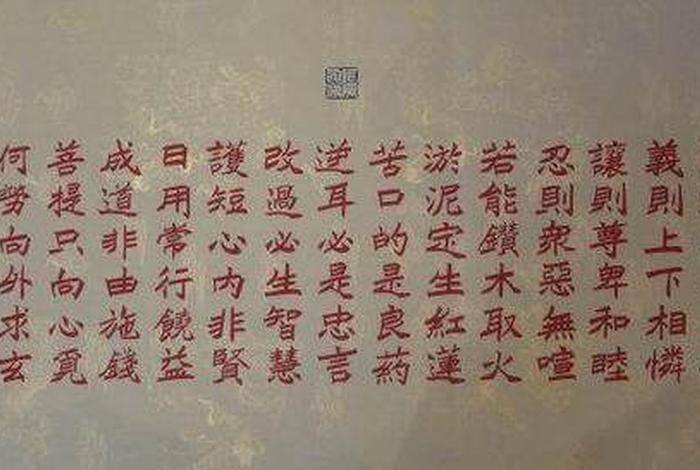 義則上下相憐
讓則尊卑和睦
忍則衆惡無喧
若能鑽木取火
淤泥定生紅蓮
苦口的是良药
逆耳必是忠言
改過必生智慧
護短心内非賢
日用常行饒益
成道非由施錢
菩提只向心覓
何勞向外求玄